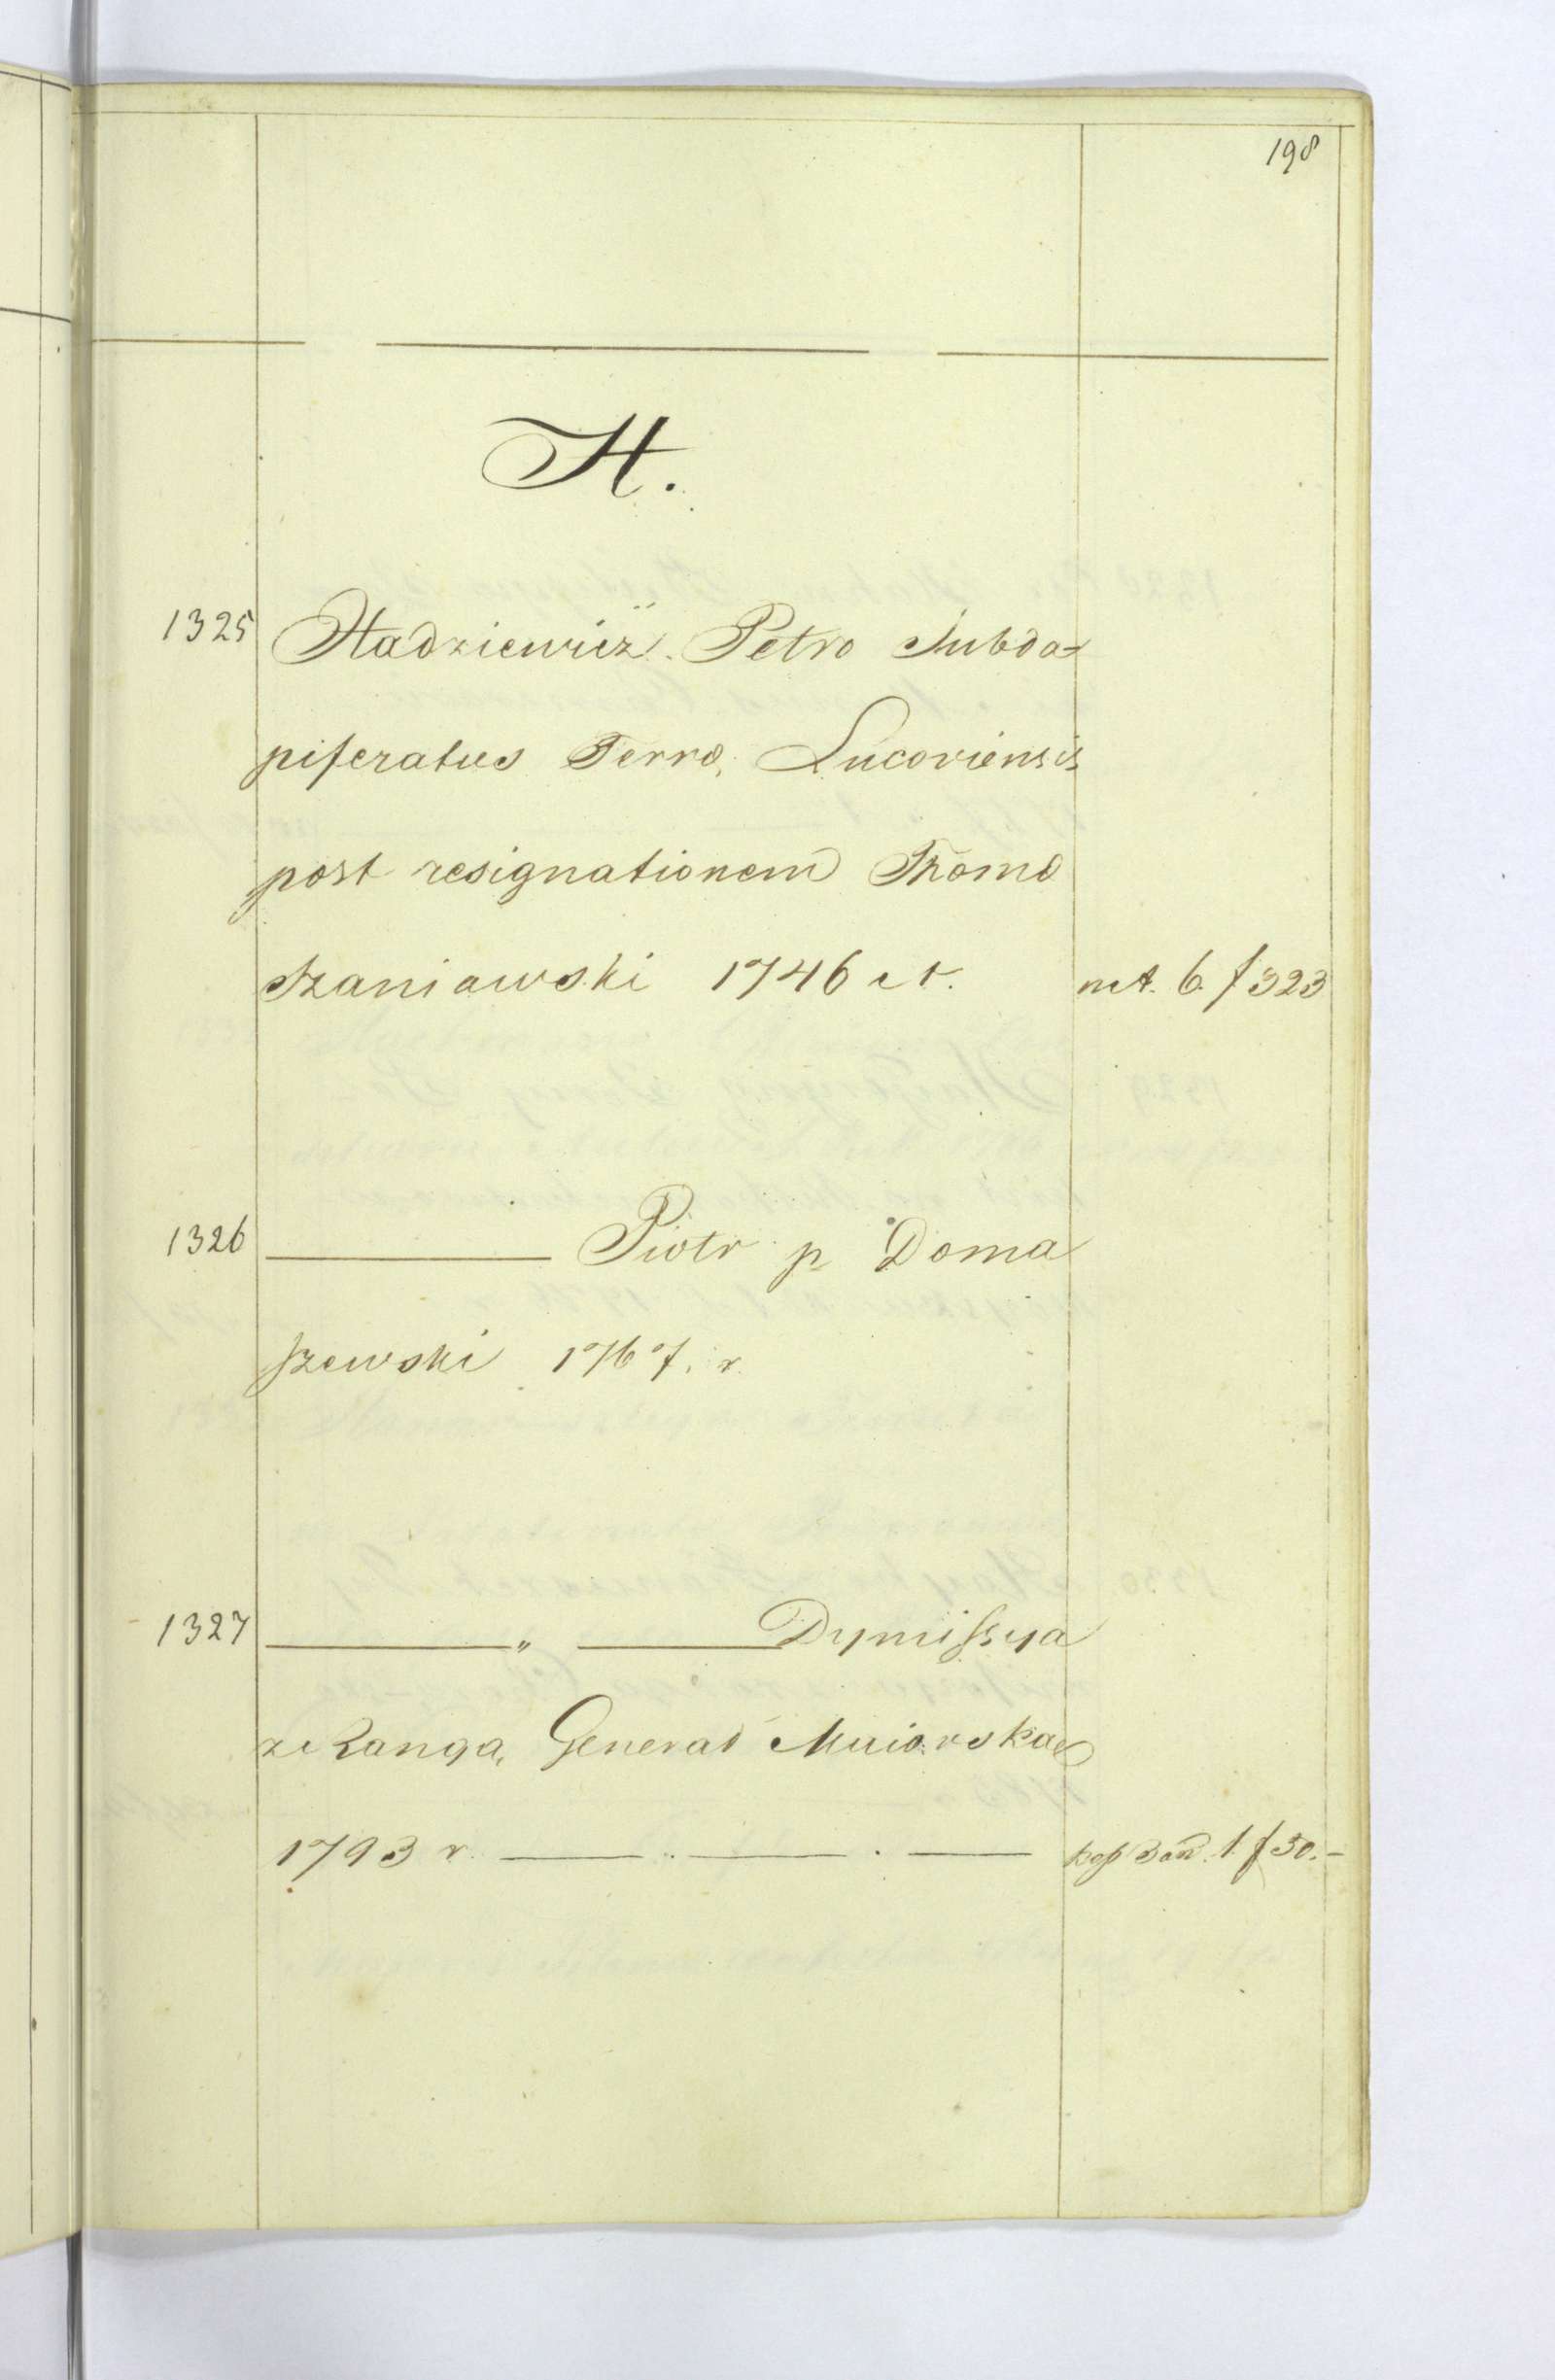 198
H.
1325 Hadziewicz Petro Subda=
piferatus Terræ Lucoviensis
post resignationem Thomæ
Szaniawski 1746 A. mA. 6. f 323
1326 ——— Piotr p Doma
szewski 1767. r.
1327 ——— „ ——— Dymissya
z Rangą General Maiorską
1793 r. ——— . ——— . ——— 1 f 50.-